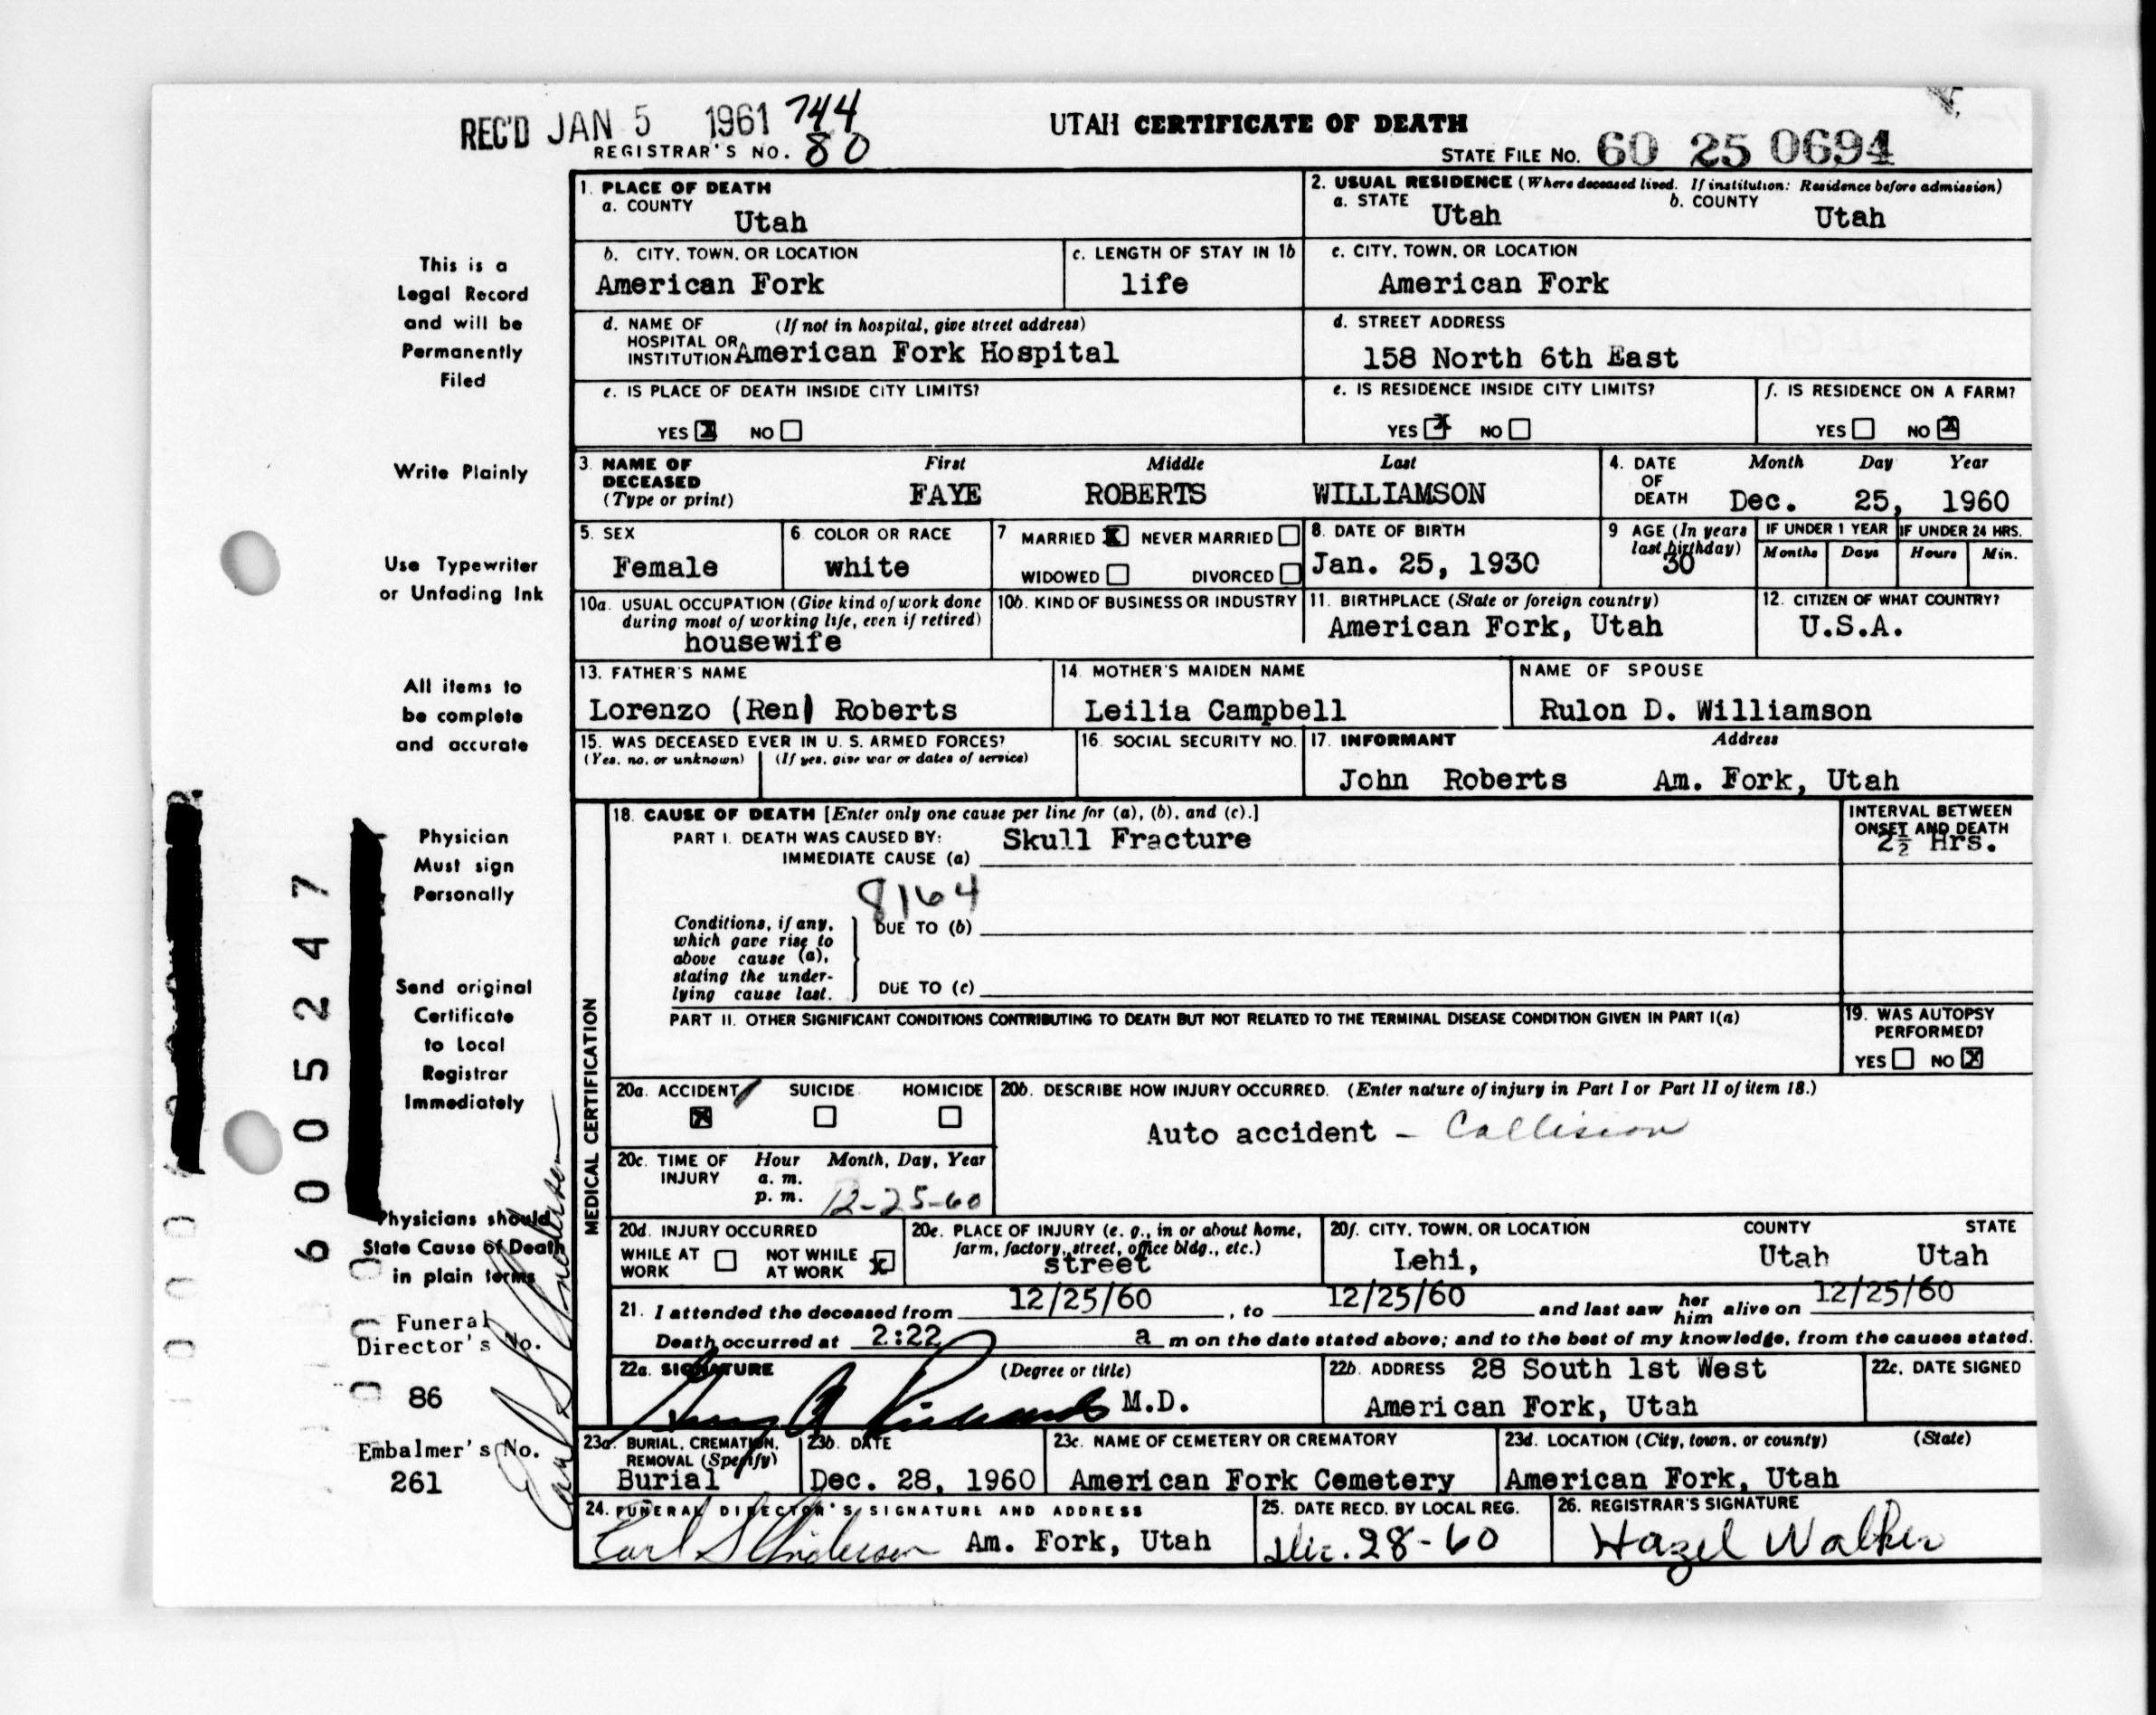 REC'D JAN 5 1961 744
REGISTRAR'S NO. 80
UTAH CERTIFICATE OF DEATH
STATE FILE NO. 60 25 0694
This is a
Legal Record
and will be
Permanently
Filed
Write Plainly
Use Typewriter
or Unfading Ink
All items to
be complete
and accurate
Physician
Must sign
Personally
Send original
Certificate
to Local
Registrar
Immediately
Physicians should
State Cause of Death
in plain terms
Funeral
Director's No.
86
Embalmer's No.
261
6005247
Earl S Anderson
1. PLACE OF DEATH
a. COUNTY
Utah
2. USUAL RESIDENCE (Where deceased lived. If institution: Residence before admission)
a. STATE Utah b. COUNTY Utah
b. CITY, TOWN, OR LOCATION
American Fork
c. LENGTH OF STAY IN 1b
life
c. CITY, TOWN, OR LOCATION
American Fork
d. NAME OF (If not in hospital, give street address)
HOSPITAL OR
INSTITUTION American Fork Hospital
d. STREET ADDRESS
158 North 6th East
e. IS PLACE OF DEATH INSIDE CITY LIMITS?
YES X NO
e. IS RESIDENCE INSIDE CITY LIMITS?
YES X NO
f. IS RESIDENCE ON A FARM?
YES NO X
3. NAME OF DECEASED (Type or print)
First Middle Last
FAYE ROBERTS WILLIAMSON
4. DATE OF DEATH
Month Day Year
Dec. 25, 1960
5. SEX
Female
6 COLOR OR RACE
white
7 MARRIED X NEVER MARRIED
WIDOWED DIVORCED
8. DATE OF BIRTH
Jan. 25, 1930
9 AGE (In years last birthday)
30
IF UNDER 1 YEAR
Months Days
IF UNDER 24 HRS.
Hours Min.
10a. USUAL OCCUPATION (Give kind of work done
during most of working life, even if retired)
housewife
10b. KIND OF BUSINESS OR INDUSTRY
11. BIRTHPLACE (State or foreign country)
American Fork, Utah
12. CITIZEN OF WHAT COUNTRY?
U.S.A.
13. FATHER'S NAME
Lorenzo (Ren) Roberts
14. MOTHER'S MAIDEN NAME
Leilia Campbell
NAME OF SPOUSE
Rulon D. Williamson
15. WAS DECEASED EVER IN U. S. ARMED FORCES?
(Yes, no, or unknown) (If yes, give war or dates of service)
16. SOCIAL SECURITY NO.
17. INFORMANT Address
John Roberts Am. Fork, Utah
MEDICAL CERTIFICATION
18. CAUSE OF DEATH [Enter only one cause per line for (a), (b), and (c).]
PART I. DEATH WAS CAUSED BY: Skull Fracture
IMMEDIATE CAUSE (a)
INTERVAL BETWEEN
ONSET AND DEATH
2½ Hrs.
8164
Conditions, if any,
which gave rise to
above cause (a),
stating the under-
lying cause last.
DUE TO (b)
DUE TO (c)
PART II. OTHER SIGNIFICANT CONDITIONS CONTRIBUTING TO DEATH BUT NOT RELATED TO THE TERMINAL DISEASE CONDITION GIVEN IN PART I(a)
19. WAS AUTOPSY
PERFORMED?
YES NO X
20a. ACCIDENT SUICIDE HOMICIDE
X
20b. DESCRIBE HOW INJURY OCCURRED. (Enter nature of injury in Part I or Part II of item 18.)
Auto accident - Collision
20c. TIME OF INJURY
Hour Month, Day, Year
a. m.
p. m. 12-25-60
20d. INJURY OCCURRED
WHILE AT WORK NOT WHILE AT WORK X
20e. PLACE OF INJURY (e. g., in or about home,
farm, factory, street, office bldg., etc.)
street
20f. CITY, TOWN, OR LOCATION COUNTY STATE
Lehi, Utah Utah
21. I attended the deceased from 12/25/60, to 12/25/60 and last saw her him alive on 12/25/60
Death occurred at 2:22 a m on the date stated above; and to the best of my knowledge, from the causes stated.
22a. SIGNATURE (Degree or title)
Guy A Richards M.D.
22b. ADDRESS 28 South 1st West
American Fork, Utah
22c. DATE SIGNED
23a. BURIAL, CREMATION,
REMOVAL (Specify)
Burial
23b. DATE
Dec. 28, 1960
23c. NAME OF CEMETERY OR CREMATORY
American Fork Cemetery
23d. LOCATION (City, town, or county) (State)
American Fork, Utah
24. FUNERAL DIRECTOR'S SIGNATURE AND ADDRESS
Earl S Anderson Am. Fork, Utah
25. DATE RECD. BY LOCAL REG.
Dec. 28-60
26. REGISTRAR'S SIGNATURE
Hazel Walker